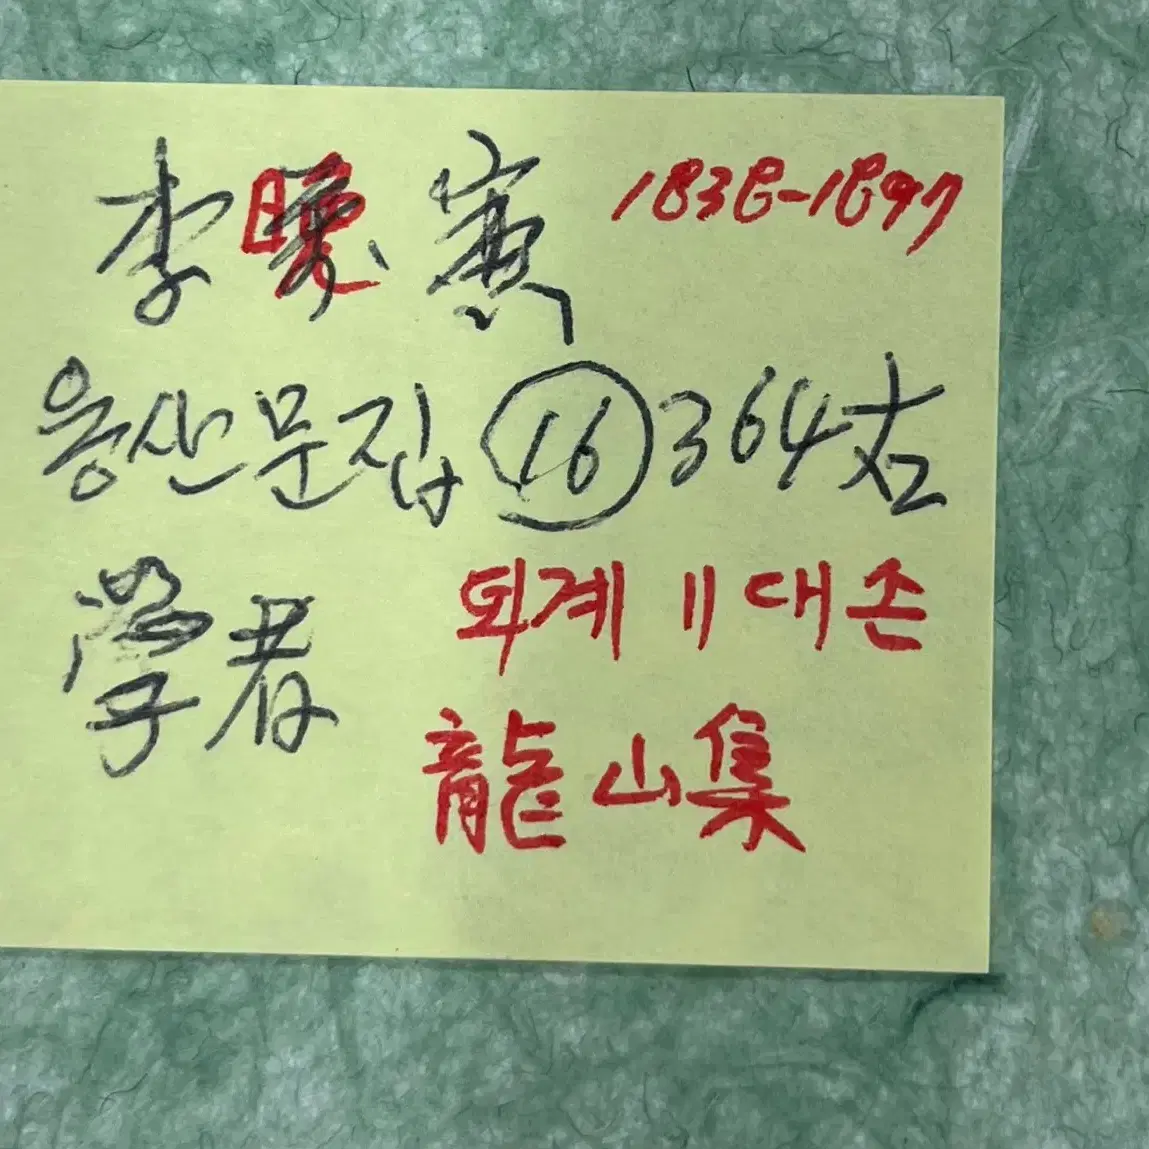 李 寅 1838-1897
용산문집 ⑯ 364
學者 퇴계 11대손
龍山集